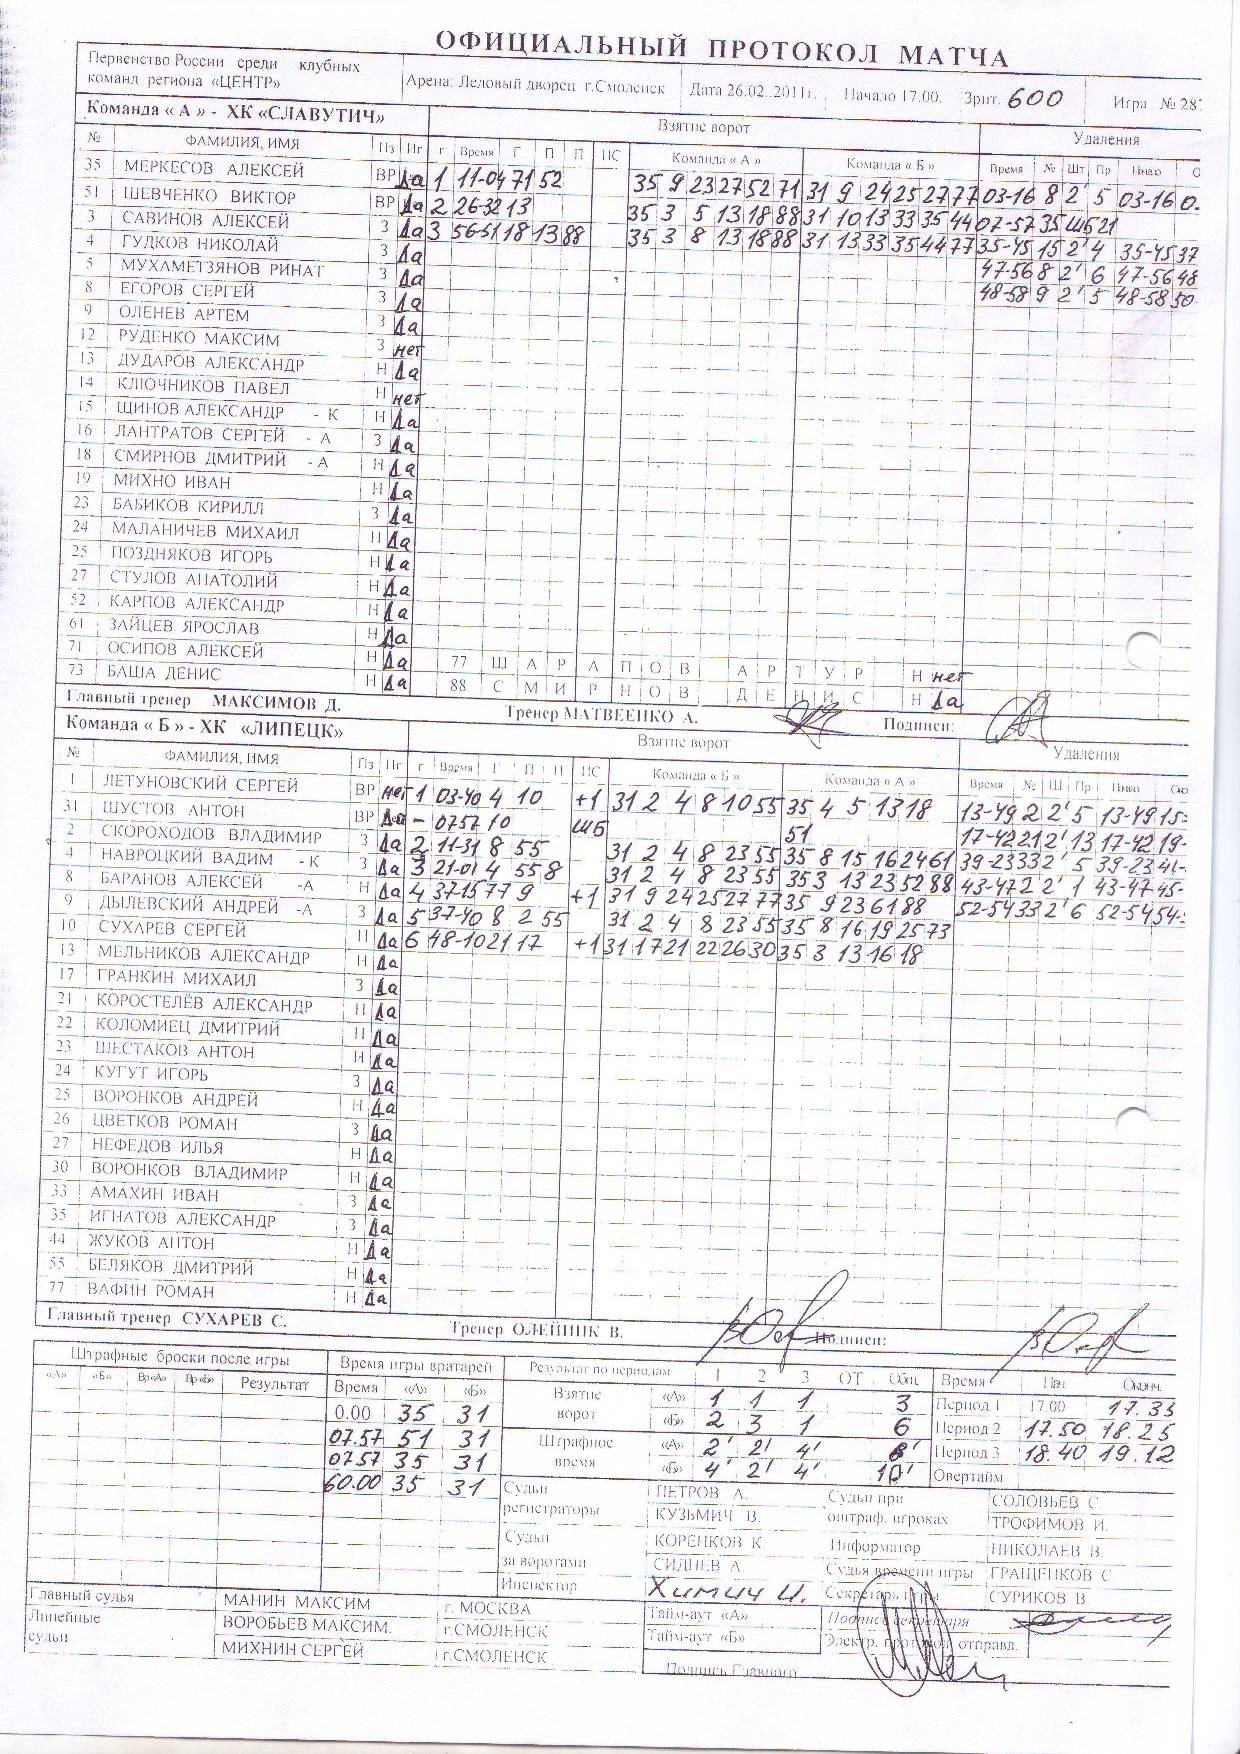 ОФИЦИАЛЬНЫЙ ПРОТОКОЛ МАТЧА
Первенство России среди клубных
команд региона «ЦЕНТР»
Арена: Ледовый дворец г.Смоленск
Дата 26.02..2011г.
Начало 17.00.
Зрит. 600
Игра № 28
Команда « А » - ХК «СЛАВУТИЧ»
Взятие ворот
Удаления
№ ФАМИЛИЯ, ИМЯ Пз Иг г Время Г П П ИС Команда « А » Команда « Б » Время № Шт Пр Начало О
35 МЕРКЕСОВ АЛЕКСЕЙ ВР Да 1 11-04 71 52 35 9 23 27 52 71 31 9 24 25 27 77 03-16 8 2' 5 03-16 0.
51 ШЕВЧЕНКО ВИКТОР ВР Да 2 26-32 13 35 3 5 13 18 88 31 10 13 33 35 44 07-57 35 ШБ 21
3 САВИНОВ АЛЕКСЕЙ З Да 3 56-51 18 13 88 35 3 8 13 18 88 31 13 33 35 44 77 35-45 15 2' 4 35-45 37
4 ГУДКОВ НИКОЛАЙ З Да 47-56 8 2' 6 47-56 48
5 МУХАМЕТЗЯНОВ РИНАТ З Да 48-58 9 2' 5 48-58 50
8 ЕГОРОВ СЕРГЕЙ З Да
9 ОЛЕНЕВ АРТЕМ З Да
12 РУДЕНКО МАКСИМ З нет
13 ДУДАРОВ АЛЕКСАНДР Н Да
14 КЛЮЧНИКОВ ПАВЕЛ Н нет
15 ШИНОВ АЛЕКСАНДР - К Н Да
16 ЛАНТРАТОВ СЕРГЕЙ - А З Да
18 СМИРНОВ ДМИТРИЙ - А Н Да
19 МИХНО ИВАН Н Да
23 БАБИКОВ КИРИЛЛ З Да
24 МАЛАНИЧЕВ МИХАИЛ Н Да
25 ПОЗДНЯКОВ ИГОРЬ Н Да
27 СТУЛОВ АНАТОЛИЙ Н Да
52 КАРПОВ АЛЕКСАНДР Н Да
61 ЗАЙЦЕВ ЯРОСЛАВ Н Да
71 ОСИПОВ АЛЕКСЕЙ Н Да 77 ШАРАПОВ АРТУР Н нет
73 БАША ДЕНИС Н Да 88 СМИРНОВ ДЕНИС Н Да
Главный тренер МАКСИМОВ Д. Тренер МАТВЕЕНКО А. Подписи:
Команда « Б » - ХК «ЛИПЕЦК»
Взятие ворот
Удаления
№ ФАМИЛИЯ, ИМЯ Пз Иг г Время Г П П ИС Команда « Б » Команда « А » Время № Ш Пр Начало Ок
1 ЛЕТУНОВСКИЙ СЕРГЕЙ ВР нет 1 03-40 4 10 +1 31 2 4 8 10 55 35 4 5 13 18 13-49 2 2' 5 13-49 15-
31 ШУСТОВ АНТОН ВР Да - 0757 10 ШБ 51 17-42 21 2' 13 17-42 19-
2 СКОРОХОДОВ ВЛАДИМИР З Да 2 11-31 8 55 31 2 4 8 23 55 35 8 15 16 24 61 39-23 33 2' 5 39-23 41-
4 НАВРОЦКИЙ ВАДИМ - К З Да 3 21-01 4 55 8 31 2 4 8 23 55 35 3 13 23 52 88 43-47 2 2' 1 43-47 45-
8 БАРАНОВ АЛЕКСЕЙ -А Н Да 4 37-15 77 9 +1 31 9 24 25 27 77 35 9 23 61 88 52-54 33 2' 6 52-54 54-
9 ДЫЛЕВСКИЙ АНДРЕЙ -А З Да 5 37-40 8 2 55 31 2 4 8 23 55 35 8 16 19 25 73
10 СУХАРЕВ СЕРГЕЙ Н Да 6 48-10 21 17 +1 31 17 21 22 26 30 35 3 13 16 18
13 МЕЛЬНИКОВ АЛЕКСАНДР Н Да
17 ГРАНКИН МИХАИЛ З Да
21 КОРОСТЕЛЁВ АЛЕКСАНДР Н Да
22 КОЛОМИЕЦ ДМИТРИЙ Н Да
23 ШЕСТАКОВ АНТОН Н Да
24 КУГУТ ИГОРЬ З Да
25 ВОРОНКОВ АНДРЕЙ Н Да
26 ЦВЕТКОВ РОМАН З Да
27 НЕФЕДОВ ИЛЬЯ Н Да
30 ВОРОНКОВ ВЛАДИМИР Н Да
33 АМАХИН ИВАН З Да
35 ИГНАТОВ АЛЕКСАНДР З Да
44 ЖУКОВ АНТОН Н Да
55 БЕЛЯКОВ ДМИТРИЙ Н Да
77 ВАФИН РОМАН Н Да
Главный тренер СУХАРЕВ С. Тренер ОЛЕЙНИК В. Подписи:
Штрафные броски после игры Время игры вратарей Результат по периодам 1 2 3 ОТ Общ. Время Нач. Оконч.
«А» «Б» Вр«А» Вр«Б» Результат Время «А» «Б» Взятие ворот «А» 1 1 1 3 Период 1 17.00 17.35
0.00 35 31 «Б» 2 3 1 6 Период 2 17.50 18.25
07.57 51 31 Штрафное время «А» 2' 2' 4' 8' Период 3 18.40 19.12
07.57 35 31 «Б» 4' 2' 4' 10' Овертайм
60.00 35 31 Судьи регистраторы ПЕТРОВ А. Судьи при оштраф. игроках СОЛОВЬЕВ С.
КУЗЬМИЧ В. ТРОФИМОВ И.
Судьи за воротами КОРЕНКОВ К Информатор НИКОЛАЕВ В.
СИДНЕВ А. Судья времени игры ГРАЩЕНКОВ С
Инспектор Химич И. Секретарь игры СУРИКОВ В.
Главный судья МАНИН МАКСИМ г. МОСКВА Тайм-аут «А» Подпись секретаря
Линейные судьи ВОРОБЬЕВ МАКСИМ. г.СМОЛЕНСК Тайм-аут «Б» Электр. протокол отправл.
МИХНИН СЕРГЕЙ г.СМОЛЕНСК Подпись Главного